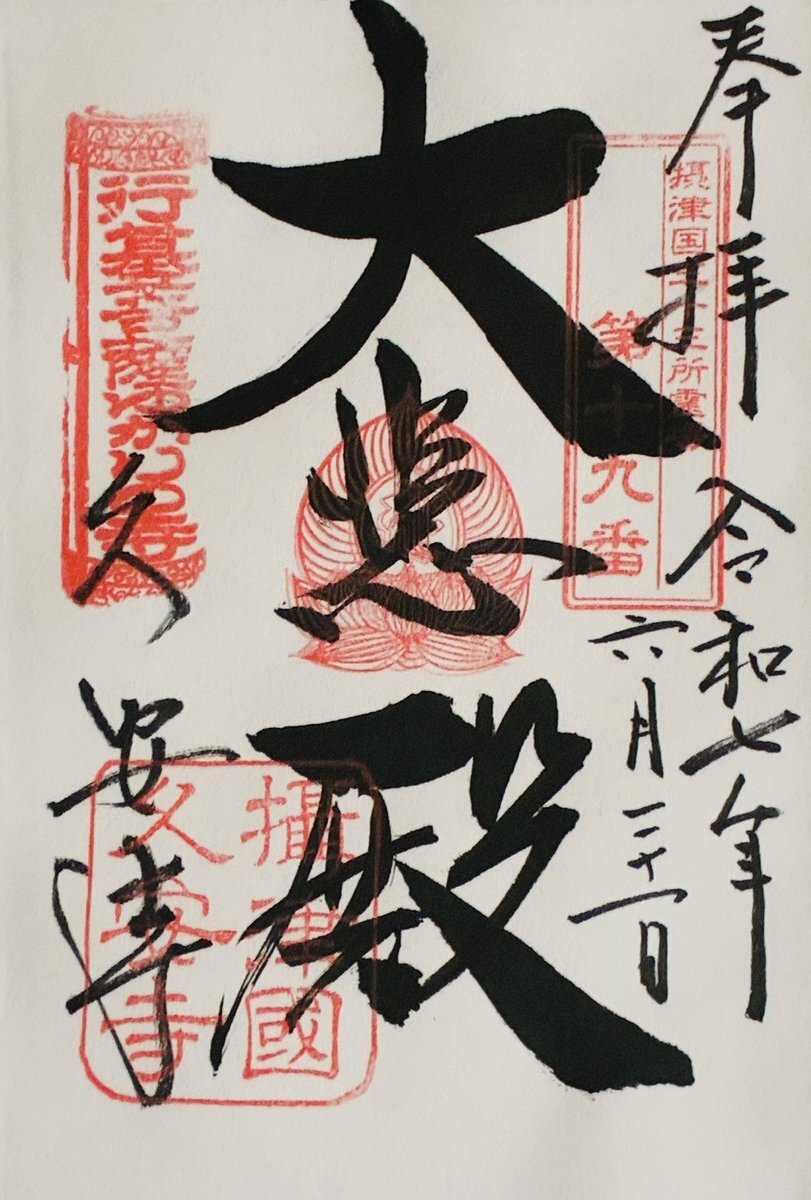 奉拝 令和七年
六月二十一日
摂津国三十三所霊場
第十九番
大悲殿
行基菩薩ゆかりの寺
久安寺
攝津國
久安寺